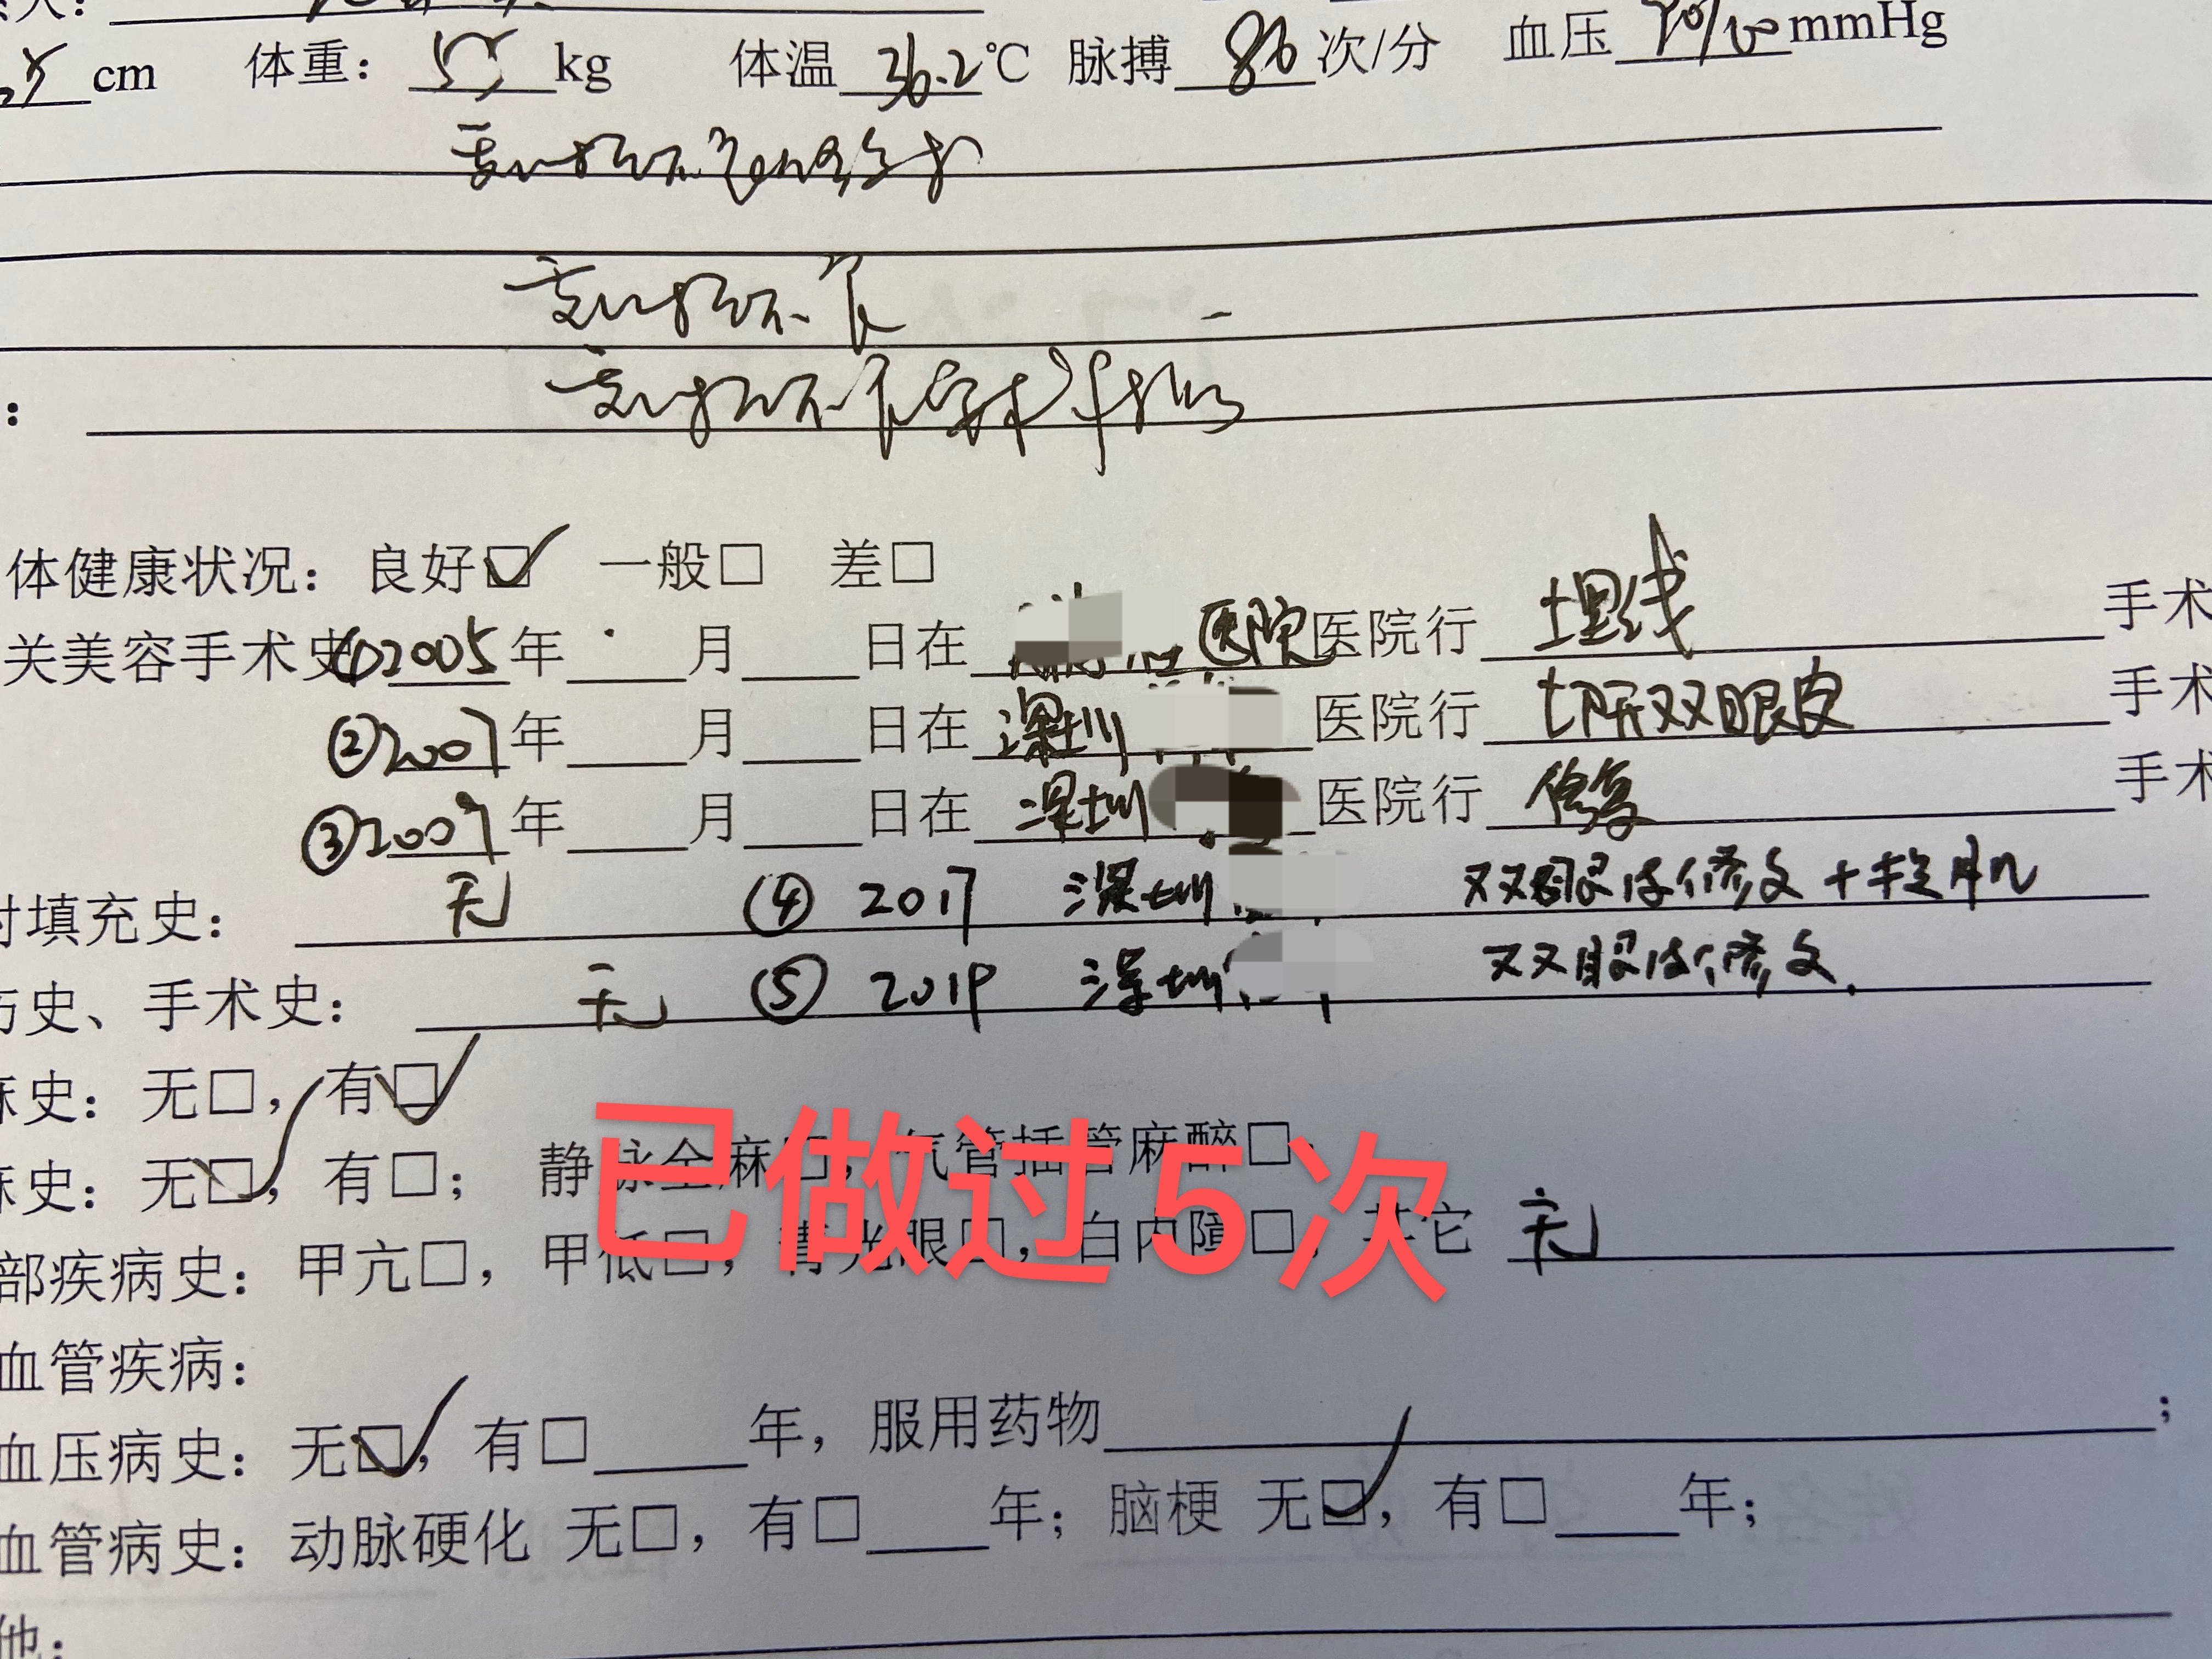 cm 体重： 55 kg 体温 36.2 ℃ 脉搏 86 次/分 血压 mmHg
：
体健康状况： 良好☑ 一般□ 差□
关美容手术史 ① 2005 年 月 日在 医院 医院行 埋线 手术
② 2007 年 月 日在 深圳 医院行 切开双眼皮 手术
③ 2009 年 月 日在 深圳 医院行 修复 手术
射填充史： 无 ④ 2017 深圳 双眼皮修复+提肌
伤史、手术史： 无 ⑤ 2019 深圳 双眼皮修复.
麻史： 无□， 有☑
麻史： 无☑， 有□； 静脉全麻□， 气管插管麻醉□；
部疾病史： 甲亢□， 甲低□， 青光眼□， 白内障□， 其它 无
已做过5次
血管疾病：
血压病史： 无☑， 有□ 年， 服用药物 ；
血管病史： 动脉硬化 无□， 有□ 年； 脑梗 无☑， 有□ 年；
他：